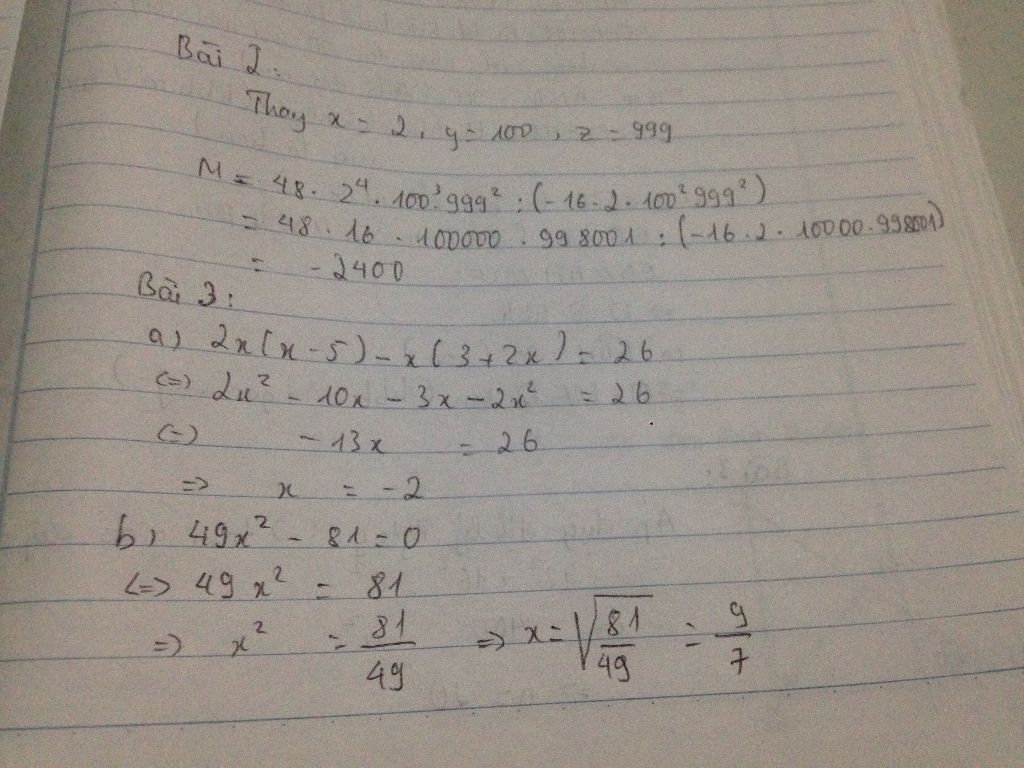 Bài 2:
Thay x = 2, y = 100, z = 999
M = 48 . 2⁴ . 100³ 999² : (-16 . 2 . 100² 999²)
= 48 . 16 . 100000 . 998001 : (-16 . 2 . 10000 . 998001)
= -2400
Bài 3:
a) 2x(x - 5) - x(3 + 2x) = 26
<=> 2x² - 10x - 3x - 2x² = 26
<=> -13x = 26
=> x = -2
b) 49x² - 81 = 0
<=> 49x² = 81
=> x² = 81/49 => x = √(81/49) = 9/7